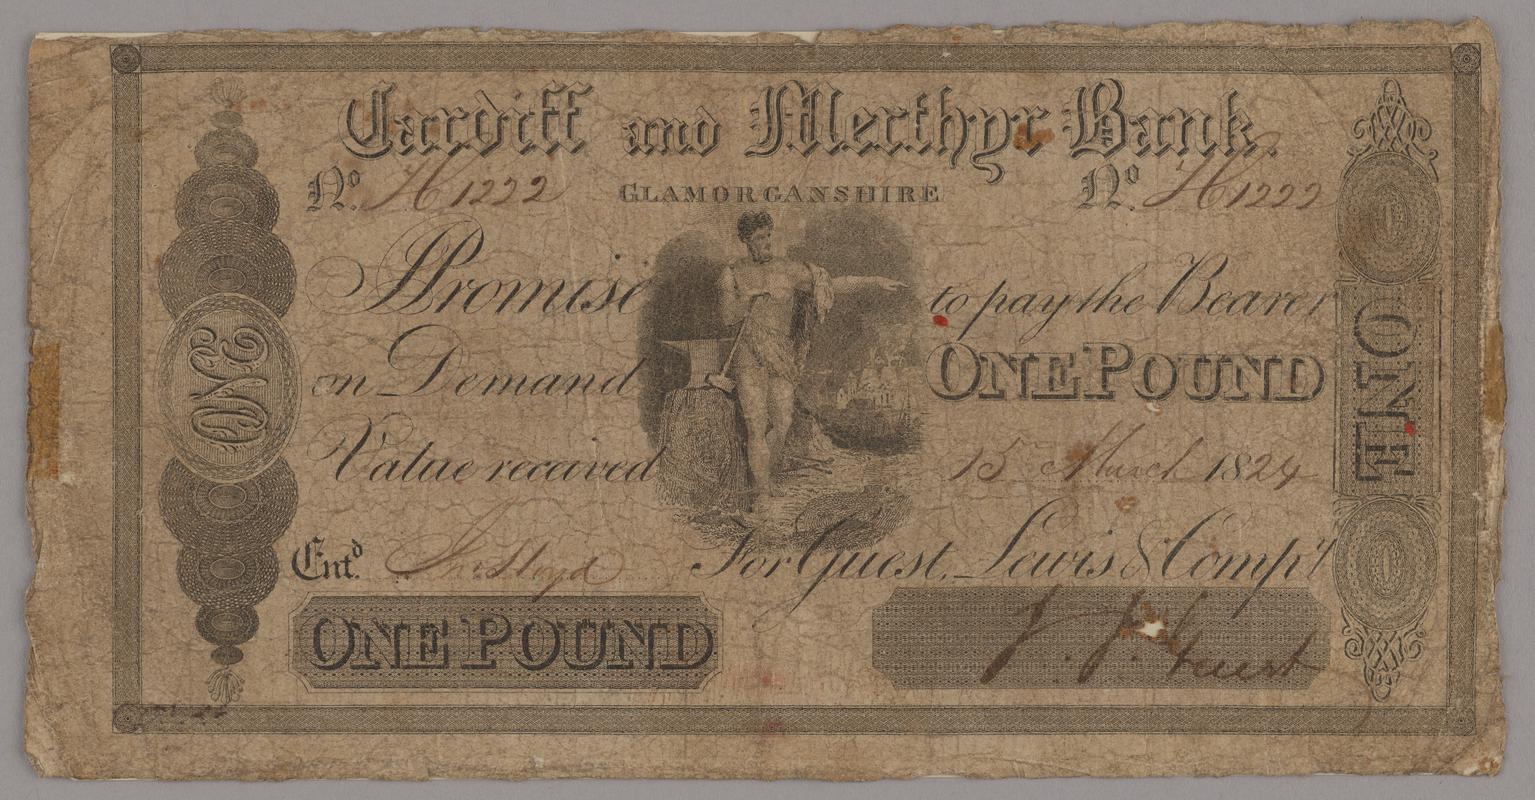 Cardiff and Merthyr Bank.
No. H1222 GLAMORGANSHIRE No. H1222
I Promise to pay the Bearer
on Demand ONE POUND
Value received 15 March 1824
Entd. Jno Lloyd For Guest, Lewis & Compy
ONE POUND J. J. Guest
ONE
ONE
1
1